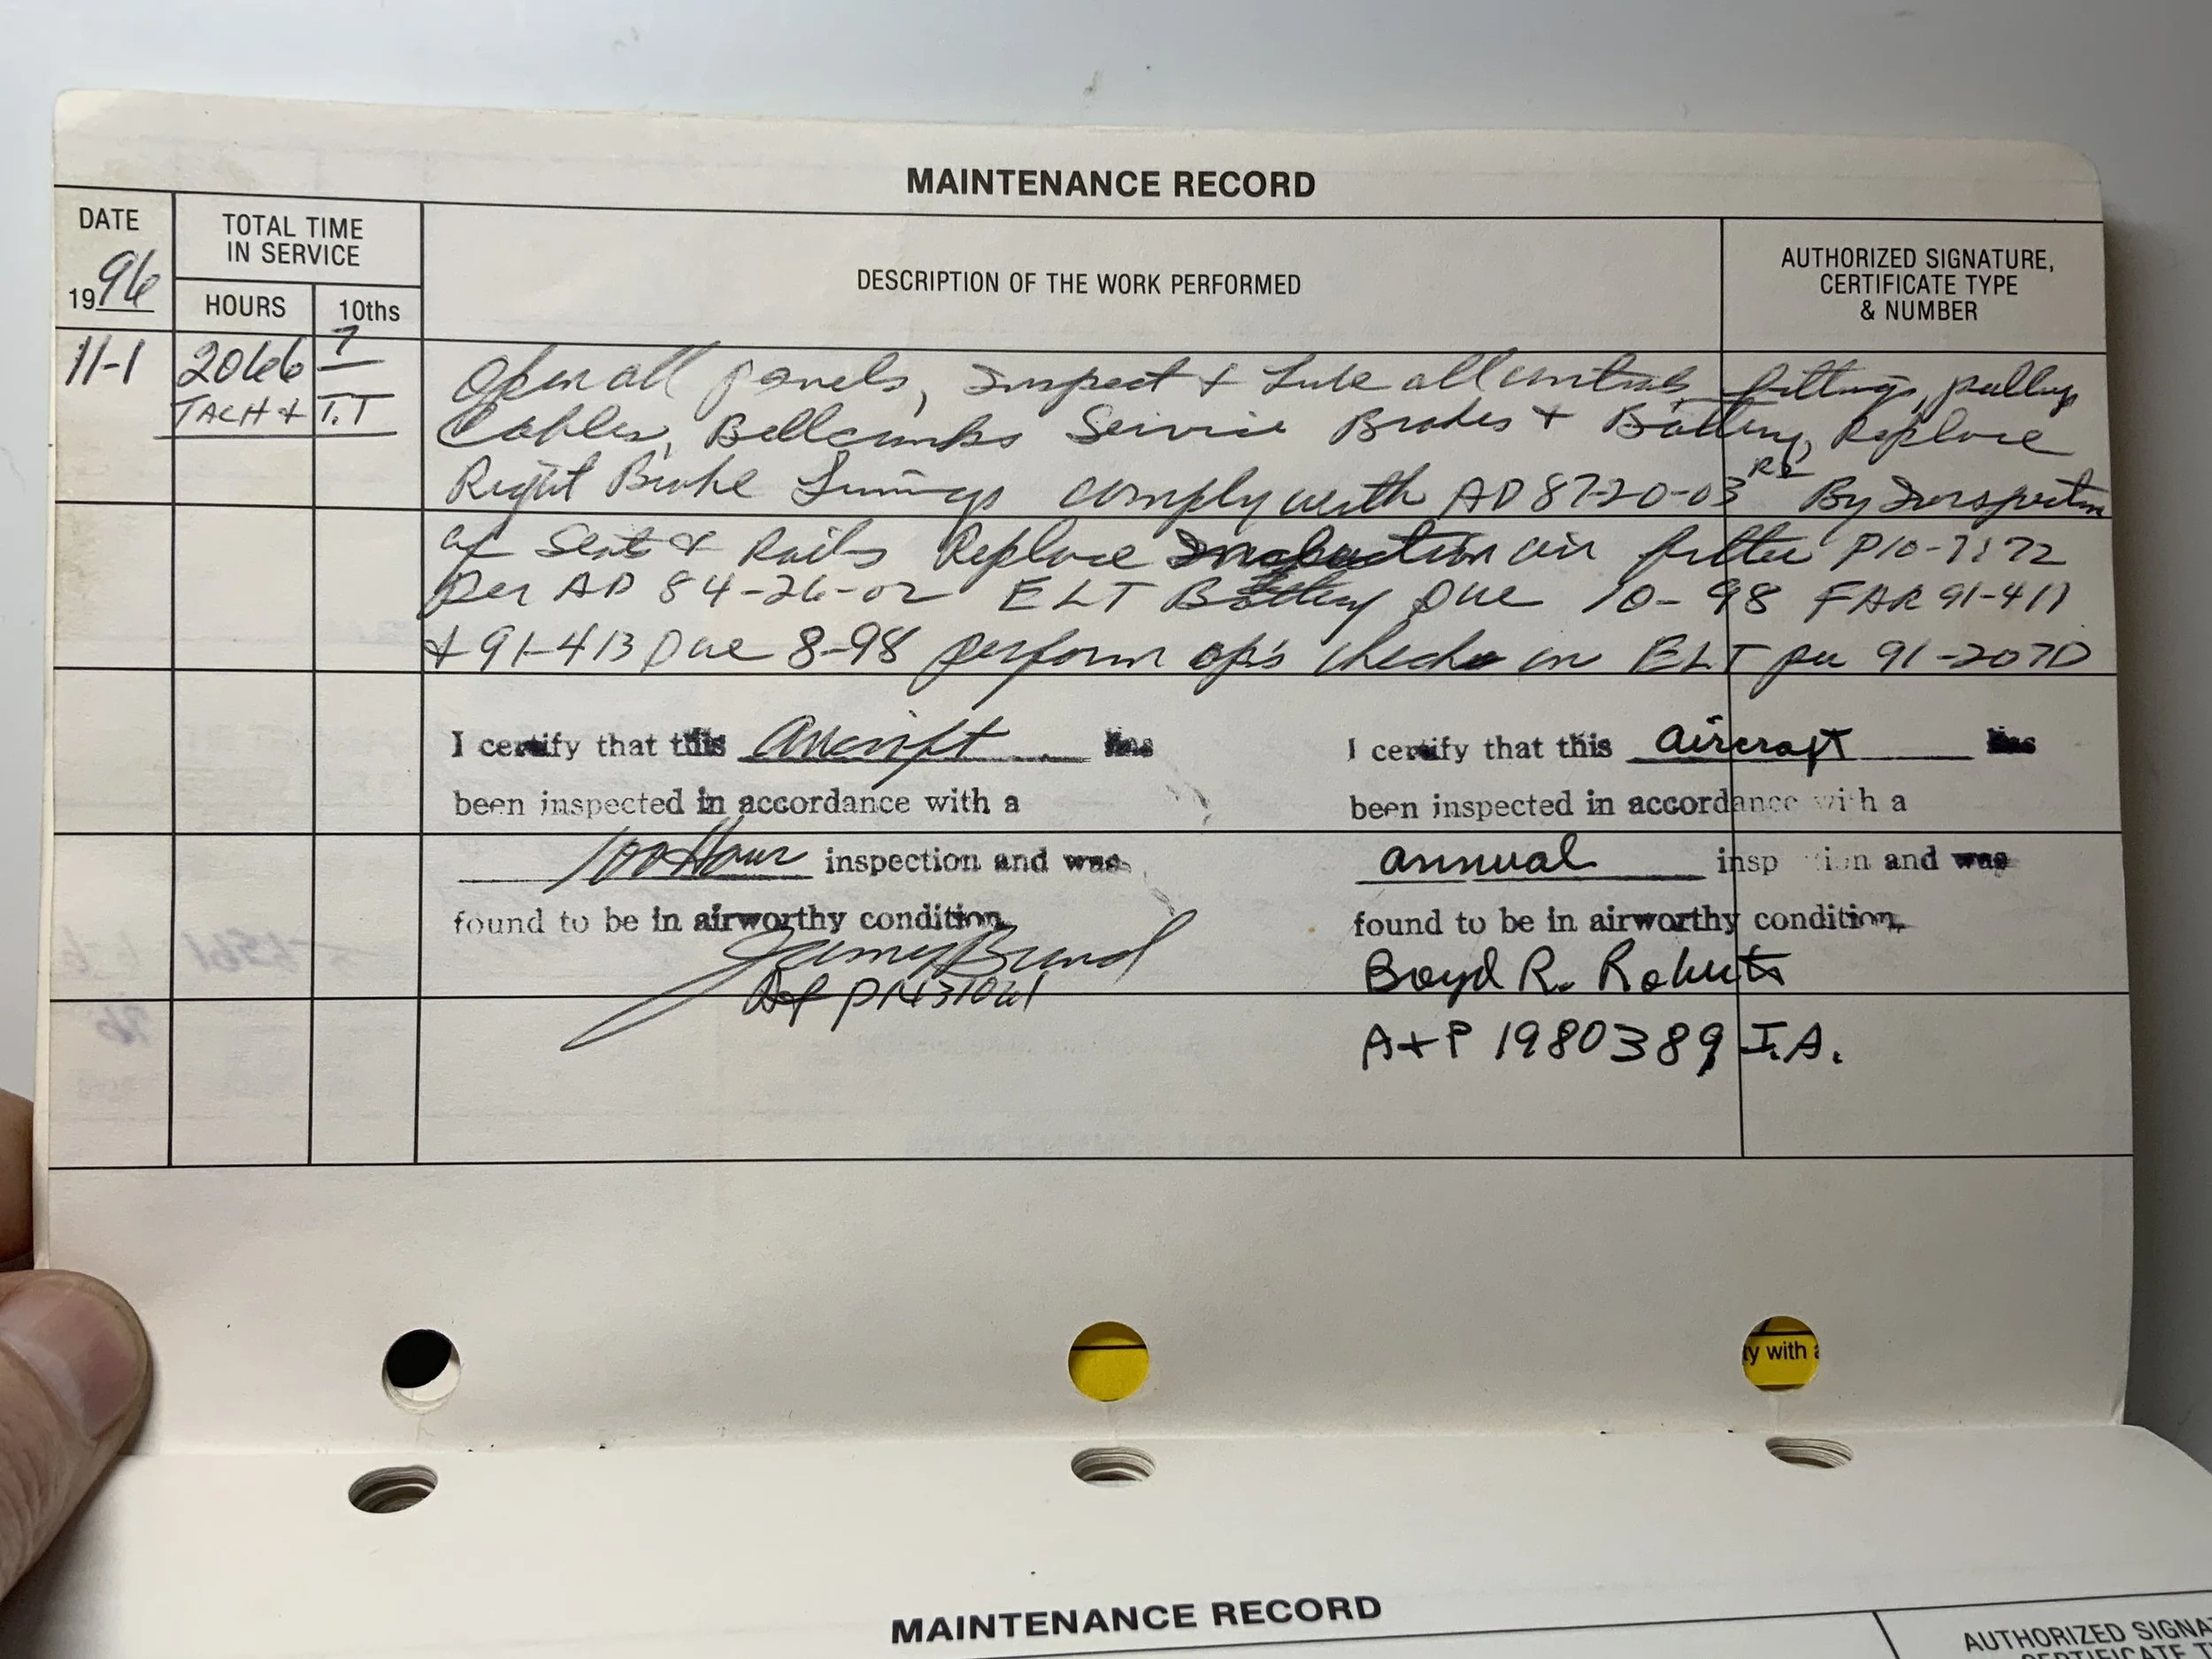 MAINTENANCE RECORD
DATE
1996
TOTAL TIME
IN SERVICE
HOURS
10ths
DESCRIPTION OF THE WORK PERFORMED
AUTHORIZED SIGNATURE,
CERTIFICATE TYPE
& NUMBER
11-1
2066 7
TACH & T.T
Open all panels, Inspect & Lube all controls, fittings, pulleys
Cables, Bellcranks Service Brakes & Battery, Replace
Right Brake Linings comply with AD 87-20-03 R2 By Inspection
of Seat & Rails Replace Induction air filter P10-7172
Per AD 84-26-02 ELT Battery Due 10-98 FAR 91-411
& 91-413 Due 8-98 perform op's check on ELT per 91-207D
I certify that this Aircraft has
been inspected in accordance with a
100 Hour inspection and was
found to be in airworthy condition.
A&P
I certify that this aircraft has
been inspected in accordance with a
annual inspection and was
found to be in airworthy condition.
Boyd R. Roberts
A+P 1980389 I.A.
ty with a
MAINTENANCE RECORD
AUTHORIZED SIGNAT